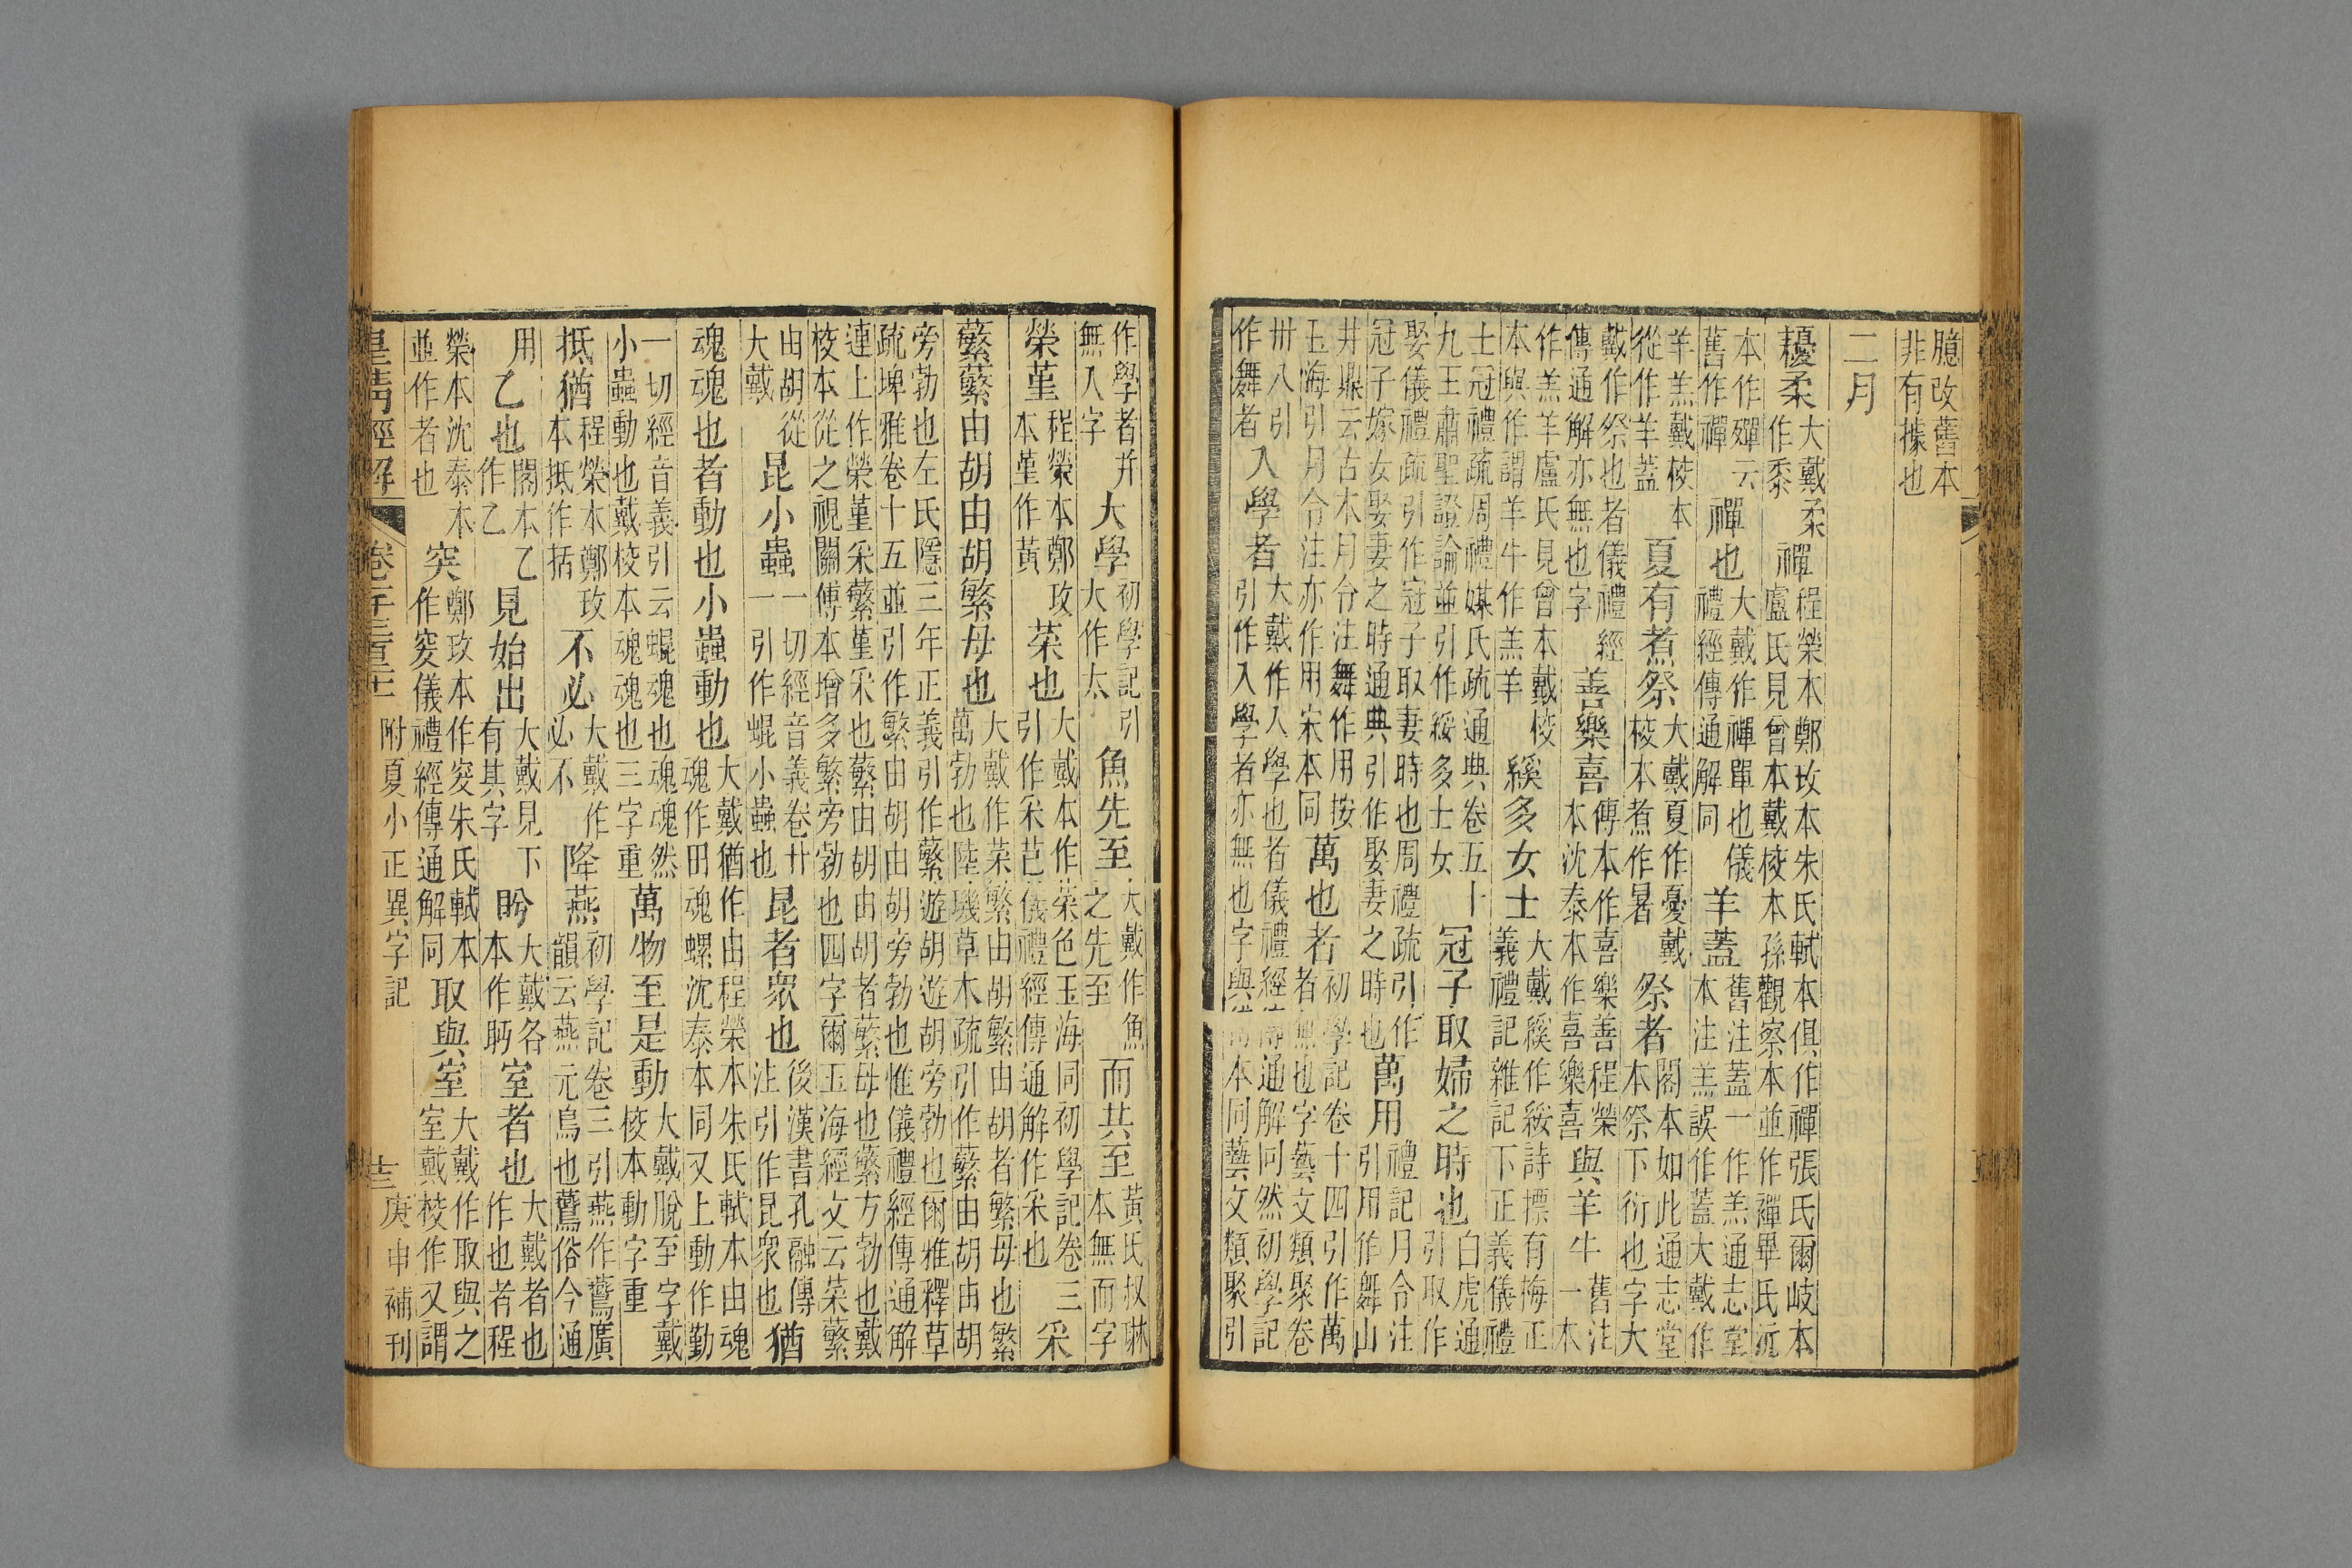 臆改舊本非有據也
二月
耰柔大戴柔作黍禪程榮本鄭玫本朱氏軾本俱作禪張氏爾岐本盧氏見曾本戴校本孫觀察本並作襌畢氏沅
本作殫云舊作禪禪也大戴作禪單也儀禮經傳通解同羊蓋舊注蓋一作羔通志堂本注羔誤作蓋大戴作
羊羔戴校本從作羊蓋夏有煮祭大戴夏作憂戴校本煮作暑祭者閣本如此通志堂本祭下衍也字大
戴作祭也者儀禮經傳通解亦無也字善樂喜傳本作喜樂善程榮本沈泰本作喜樂喜與羊牛舊注一本
作羔羊盧氏見曾本戴校本與作謂羊牛作羔羊緩多女士大戴緩作綏詩摽有梅正義禮記雜記下正義儀禮
士冠禮疏周禮媒氏疏通典卷五十九王肅聖證論並引作綏多士女冠子取婦之時也白虎通引取作
娶儀禮疏引作冠子取妻時也周禮疏引作冠子嫁女娶妻之時通典引作娶妻之時也萬用禮記月令注引用作舞山
井鼎云古本月令注舞作用按玉海引月令注亦作用宋本同萬也者初學記卷十四引作萬者無也字藝文類聚卷
卅八引作舞者入學者大戴作入學也者儀禮經傳通解同然初學記引作入學者亦無也字與傳本同藝文類聚引
作學者并無入字大學初學記引大作太魚先至大戴作魚之先至而共至黃氏叔琳本無而字
榮菫程榮本鄭玫本菫作黃菜也大戴本作菜色玉海同初學記卷三引作采芑儀禮經傳通解作采也采
蘩蘩由胡由胡繁母也大戴作菜繁由胡繁由胡者繁母也繁萬勃也陸璣草木疏引作蘩由胡由胡
旁勃也左氏隱三年正義引作蘩遊胡遊胡旁勃也爾雅釋草疏埤雅卷十五並引作繁由胡由胡旁勃也惟儀禮經傳通解
連上作榮菫采蘩菫采也蘩由胡由胡者蘩母也蘩方勃也戴校本從之視關傅本增多繁旁勃也四字爾玉海經文云菜蘩
由胡從大戴昆小蟲一切經音義卷廿一引作蜫小蟲也昆者衆也後漢書孔融傳注引作昆衆也猶
魂魂也者動也小蟲動也大戴猶作由程榮本朱氏軾本由魂魂作田魂螺沈泰本同又上動作勤
一切經音義引云蜫魂也魂魂然小蟲動也戴校本魂魂也三字重萬物至是動大戴脫至字戴校本動字重
抵猶程榮本鄭玫本抵作括不必大戴作必不降燕初學記卷三引燕作鷰廣韻云燕元鳥也鷰俗今通
用乙也閣本乙作乙見始出大戴見下有其字眄大戴各本作眄室者也大戴者也作也者程
榮本沈泰本並作者也突鄭玫本作窔朱氏軾本作窔儀禮經傳通解同取與室大戴作取與之室戴校作又謂
皇清經解 附夏小正異字記 庚申補刊